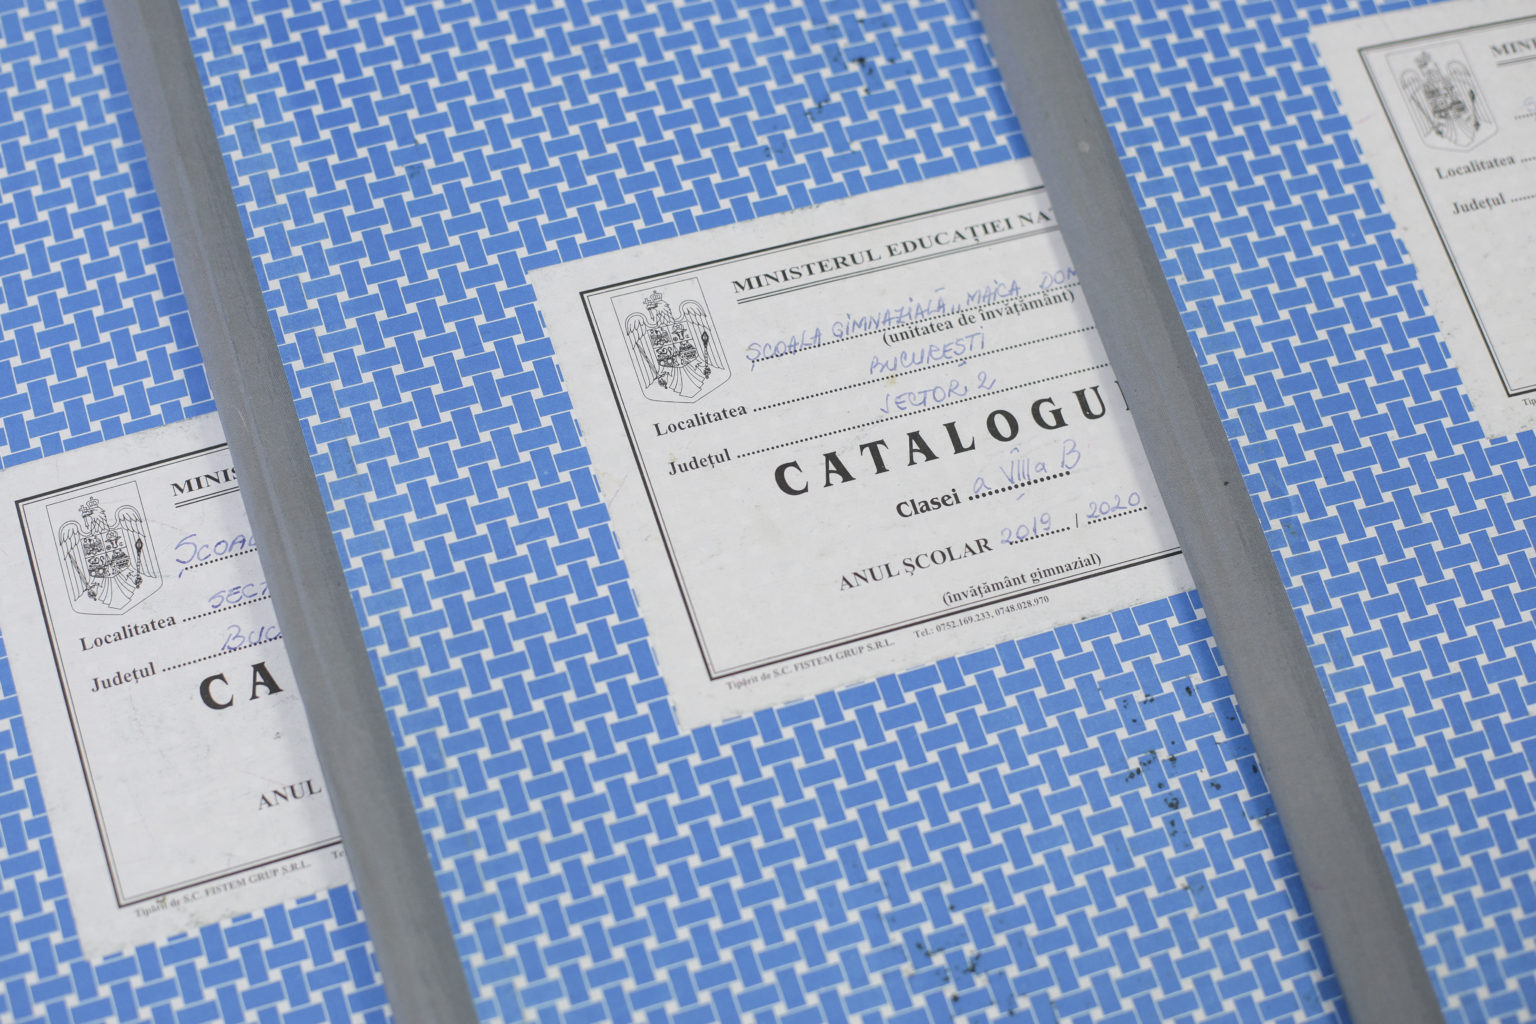 MINIS
ȘCOAL
SECT
Localitatea
BUC
Județul
CA
ANUL
Tipărit de S.C. FISTEM GRUP S.R.L. Te
MINISTERUL EDUCAȚIEI NAȚ
ȘCOALA GIMNAZIALĂ „MAICA DOM
(unitatea de învățământ)
BUCUREȘTI
Localitatea
SECTOR 2
Județul
CATALOGU
Clasei a VIII a B
ANUL ȘCOLAR 2019 / 2020
(învățământ gimnazial)
Tipărit de S.C. FISTEM GRUP S.R.L. Tel.: 0752.169.233, 0748.028.970
MINI
Localitatea
Județul
Tip